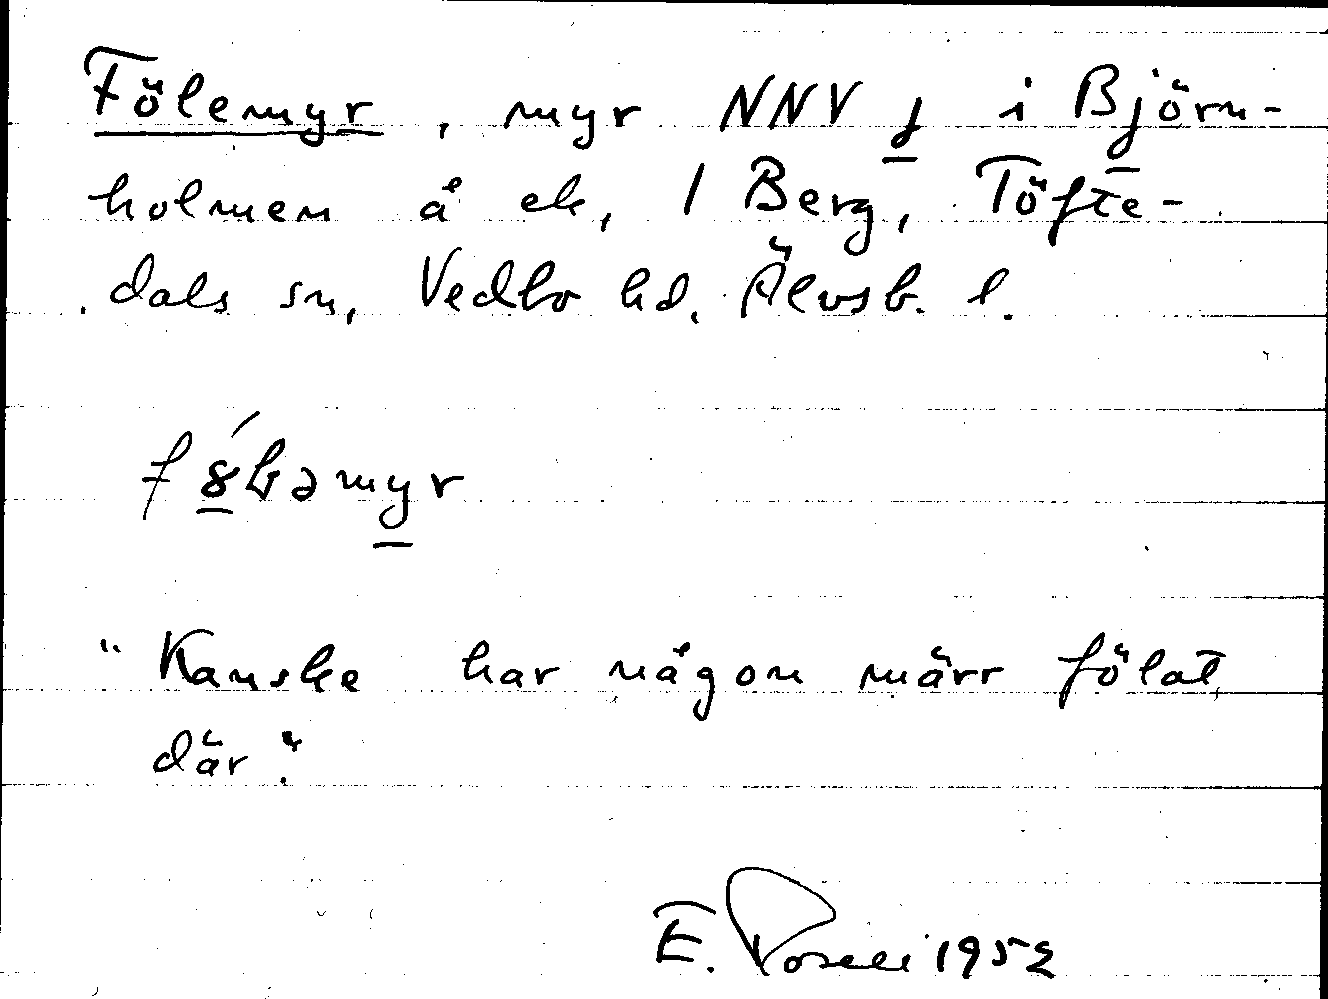 Fölemyr, myr NNV j i Björn-
holmen å ek, 1 Berg, Töfte-
dals sn, Vedbo hd, Älvsb. l.
"Kanske har någon märr fölat
där."
E. 1952